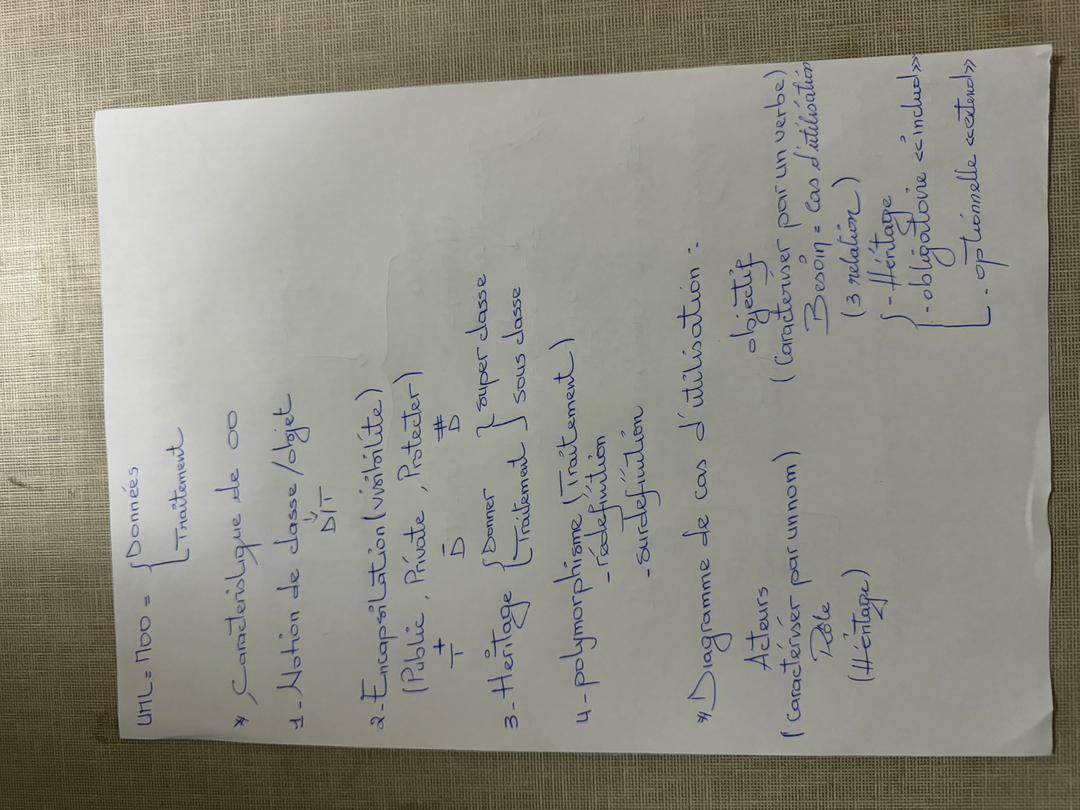 UML = MOO = { Données
Traitement
* Caracteristique de OO
1 - Notion de classe/objet
D/T
2 - Encapsilation (visibilite)
(Public, Private, Protecter)
+ - #
T D D
3 - Heritage { Donner } super classe
Traitement } sous classe
4 - polymorphisme (Traitement)
- rédefinition
- surdefinition
* Diagramme de cas d'utilisation :
Acteurs objectif
(Caractériser par un nom) (Caracteriser par un verbe)
Rôle Besoin = Cas d'utilisation
(Héritage) (3 relation)
{ - Héritage
- obligatoire <<includ>>
- optionnelle <<extend>>